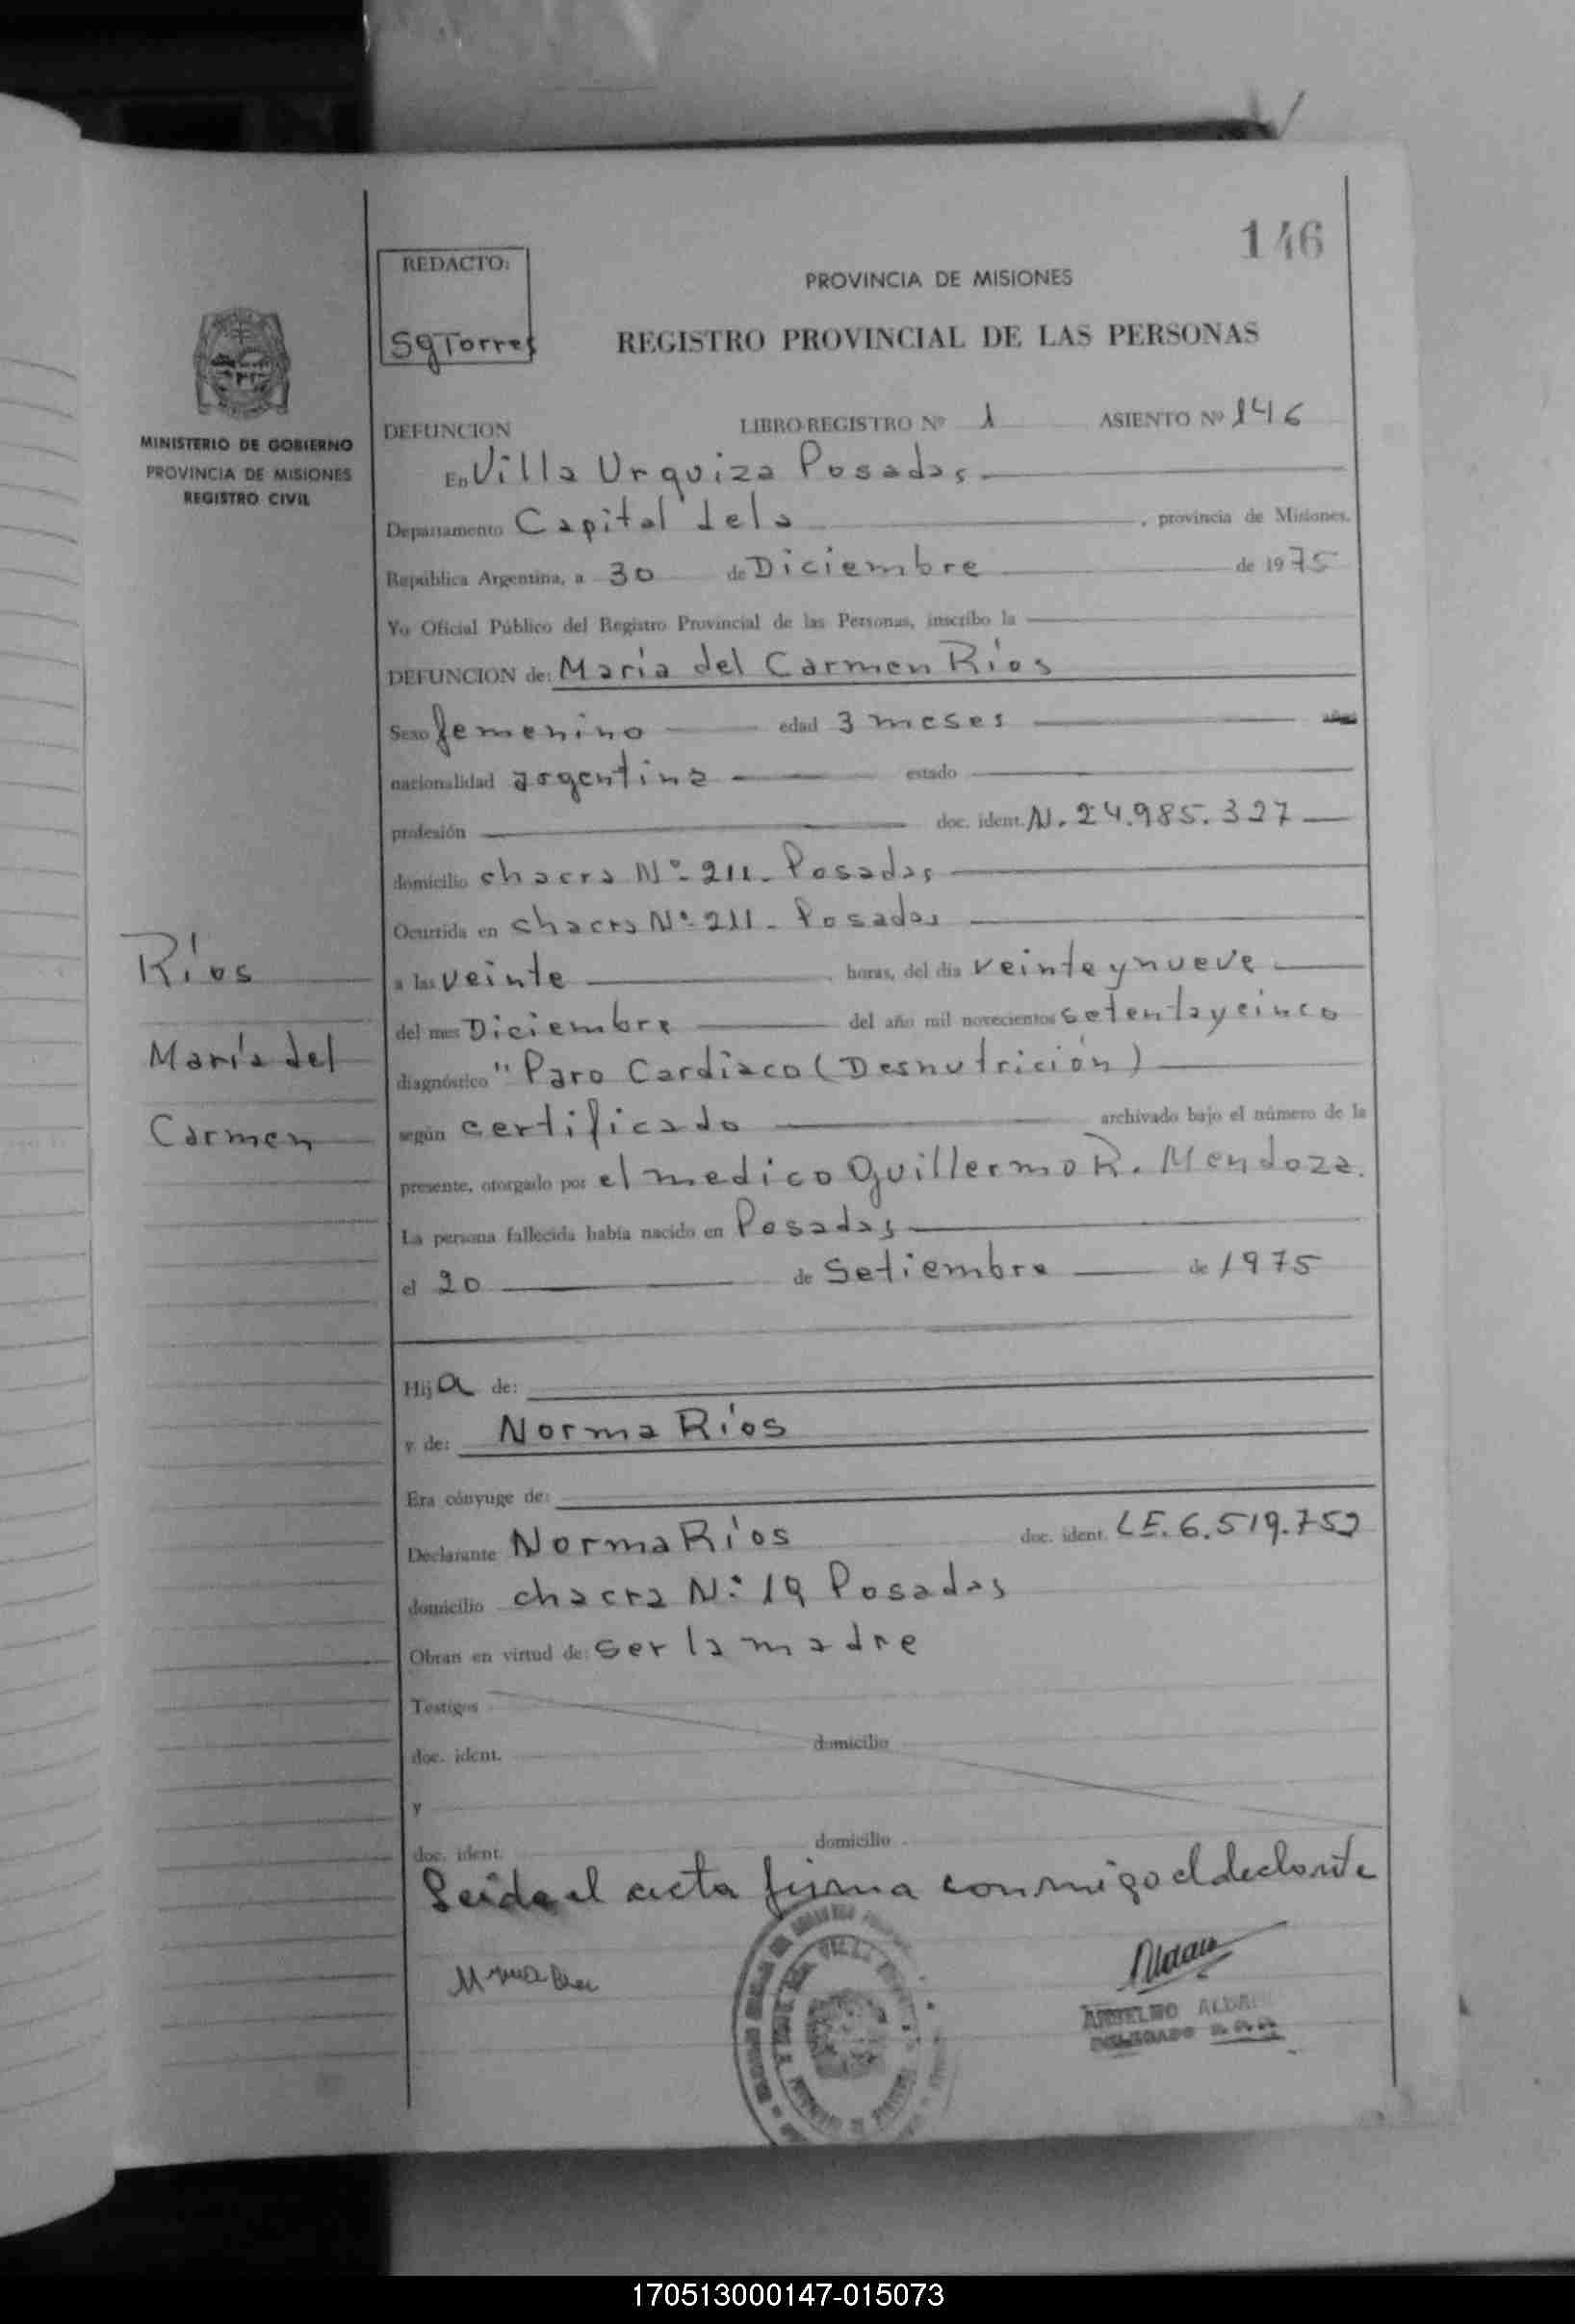 146
REDACTO:
SgTorres
PROVINCIA DE MISIONES
REGISTRO PROVINCIAL DE LAS PERSONAS
MINISTERIO DE GOBIERNO
PROVINCIA DE MISIONES
REGISTRO CIVIL
DEFUNCION LIBRO-REGISTRO Nº 1 ASIENTO Nº 146
En Villa Urquiza Posadas
Departamento Capital dela , provincia de Misiones.
República Argentina, a 30 de Diciembre de 1975
Yo Oficial Público del Registro Provincial de las Personas, inscribo la
DEFUNCION de: María del Carmen Ríos
Sexo femenino edad 3 meses
nacionalidad argentina estado
profesión doc. ident. N. 24.985.327
domicilio chacra Nº 211. Posadas
Ocurrida en chacra Nº 211. Posadas
a las veinte horas, del día veinte y nueve
del mes Diciembre del año mil novecientos setenta y cinco
diagnóstico " Paro Cardíaco (Desnutrición)
según certificado archivado bajo el número de la
presente, otorgado por el medico Guillermo R. Mendoza.
La persona fallecida había nacido en Posadas
el 20 de Setiembre de 1975
Ríos
María del
Carmen
Hija de:
y de: Norma Ríos
Era cónyuge de:
Declarante Norma Ríos doc. ident. LE. 6.519.752
domicilio chacra Nº 19 Posadas
Obran en virtud de: ser la madre
Testigos
doc. ident. domicilio
y
doc. ident. domicilio
Leida el acta firma conmigo el declante
ANSELMO
DELEGADO
170513000147-015073